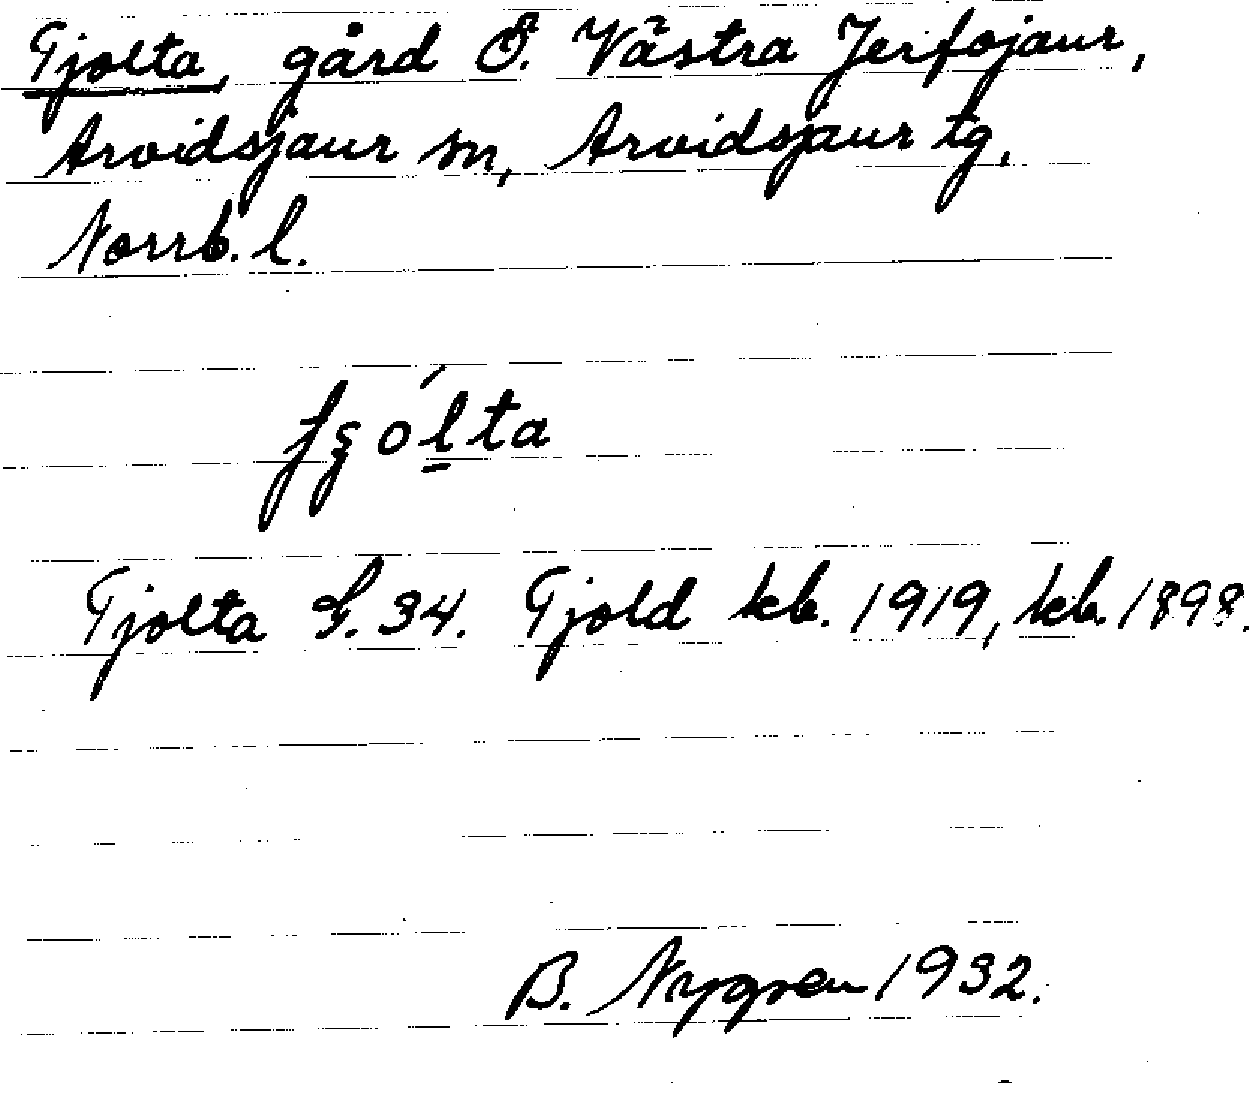 Tjolta, gård Ö. Västra Jerfojaur,
Arvidsjaur sn, Arvidsjaur tg,
Norrb. l.
Tjolta S. 34. Tjold kb. 1919, kb. 1898.
B. Nygren 1932.